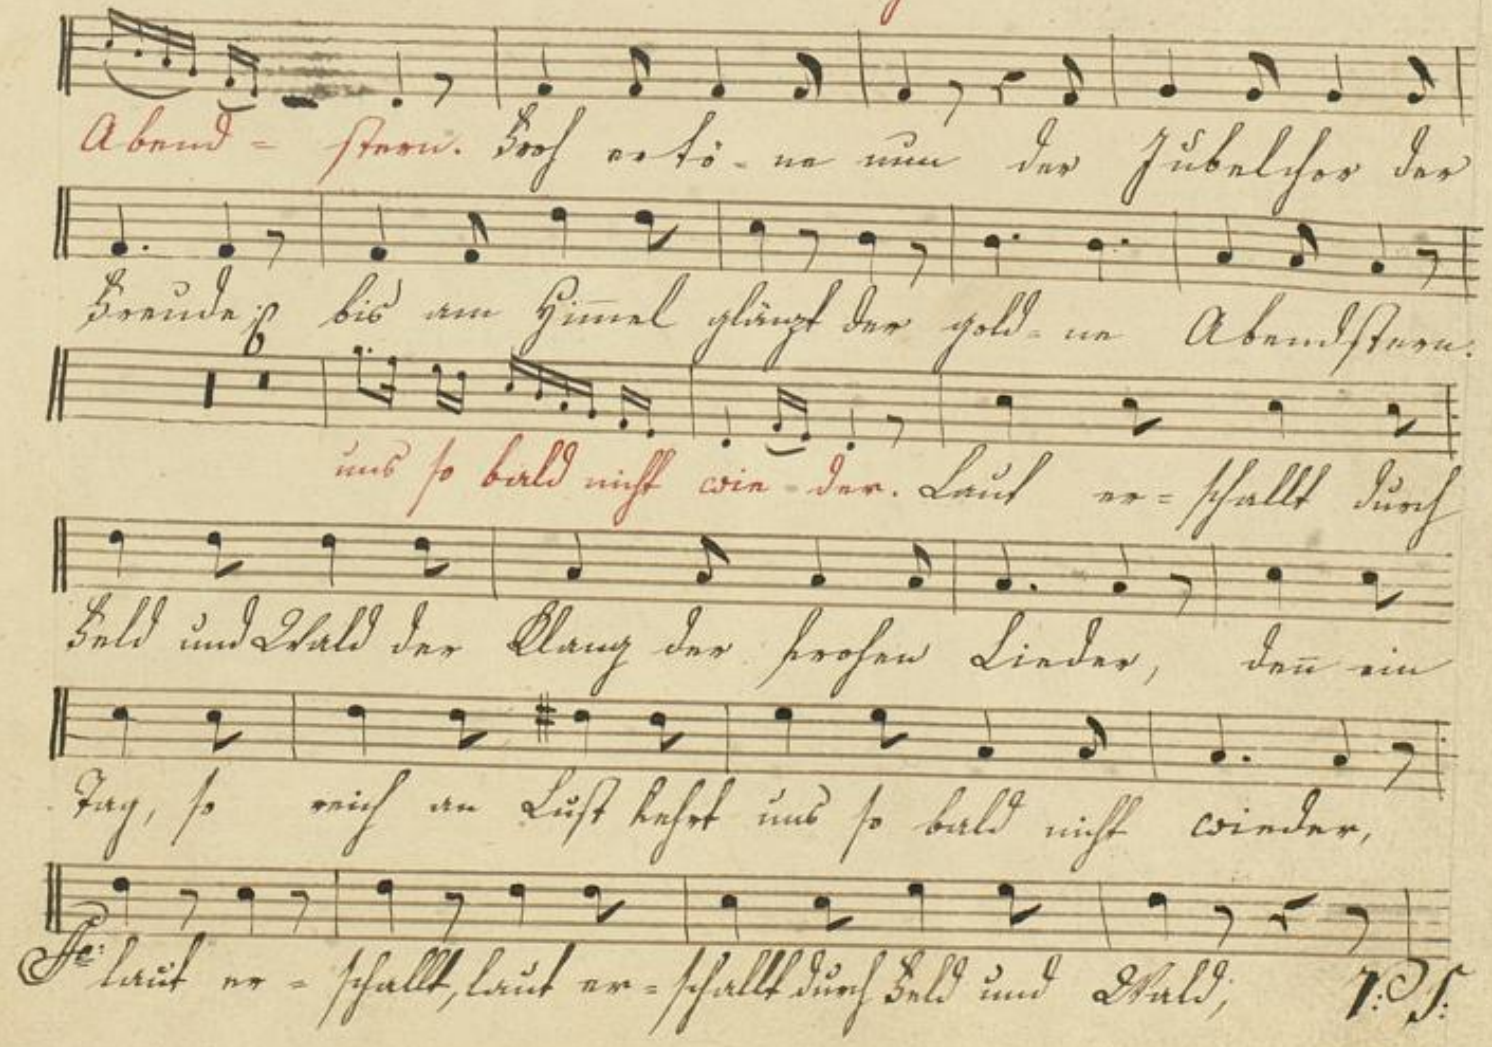 Abend = stern. Froh ertö - ne nun der Jubelchor der
Freude; bis am Him̄el glänzt der gold = ne Abendstern.
6
uns so bald nicht wie - der. Laut er = schallt durch
Feld und Wald der Klang der frohen Lieder, den̄ ein
Tag, so reich an Lust kehrt uns so bald nicht wieder,
laut er = schallt, laut er = schallt durch Feld und Wald; V: S: